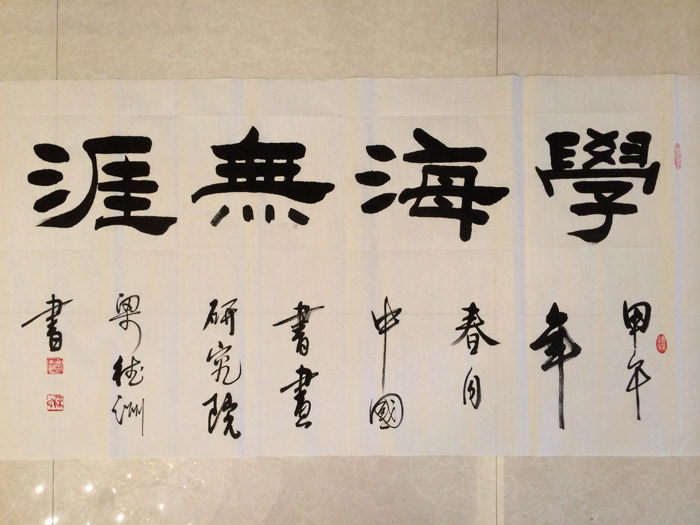 學海無涯
甲午
年
春月
中國
書畫
研究院
梁德洲
書